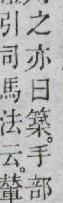 之亦曰築。手部
引司馬法云。輂